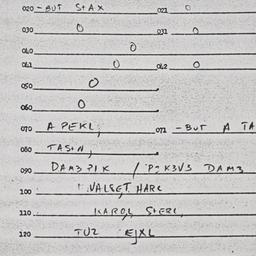 020 - BUT STAX 021 0
030 0 031 0
040 0
041 0 042 0
050 0
060 0
070 A PEKL, 071 - BUT A TA
080 TASIN,
090 DAM3 PIK / P2K3V3 DAM3
100 VALSET HARC
110 KAROS STERC
120 TUZ EJXL